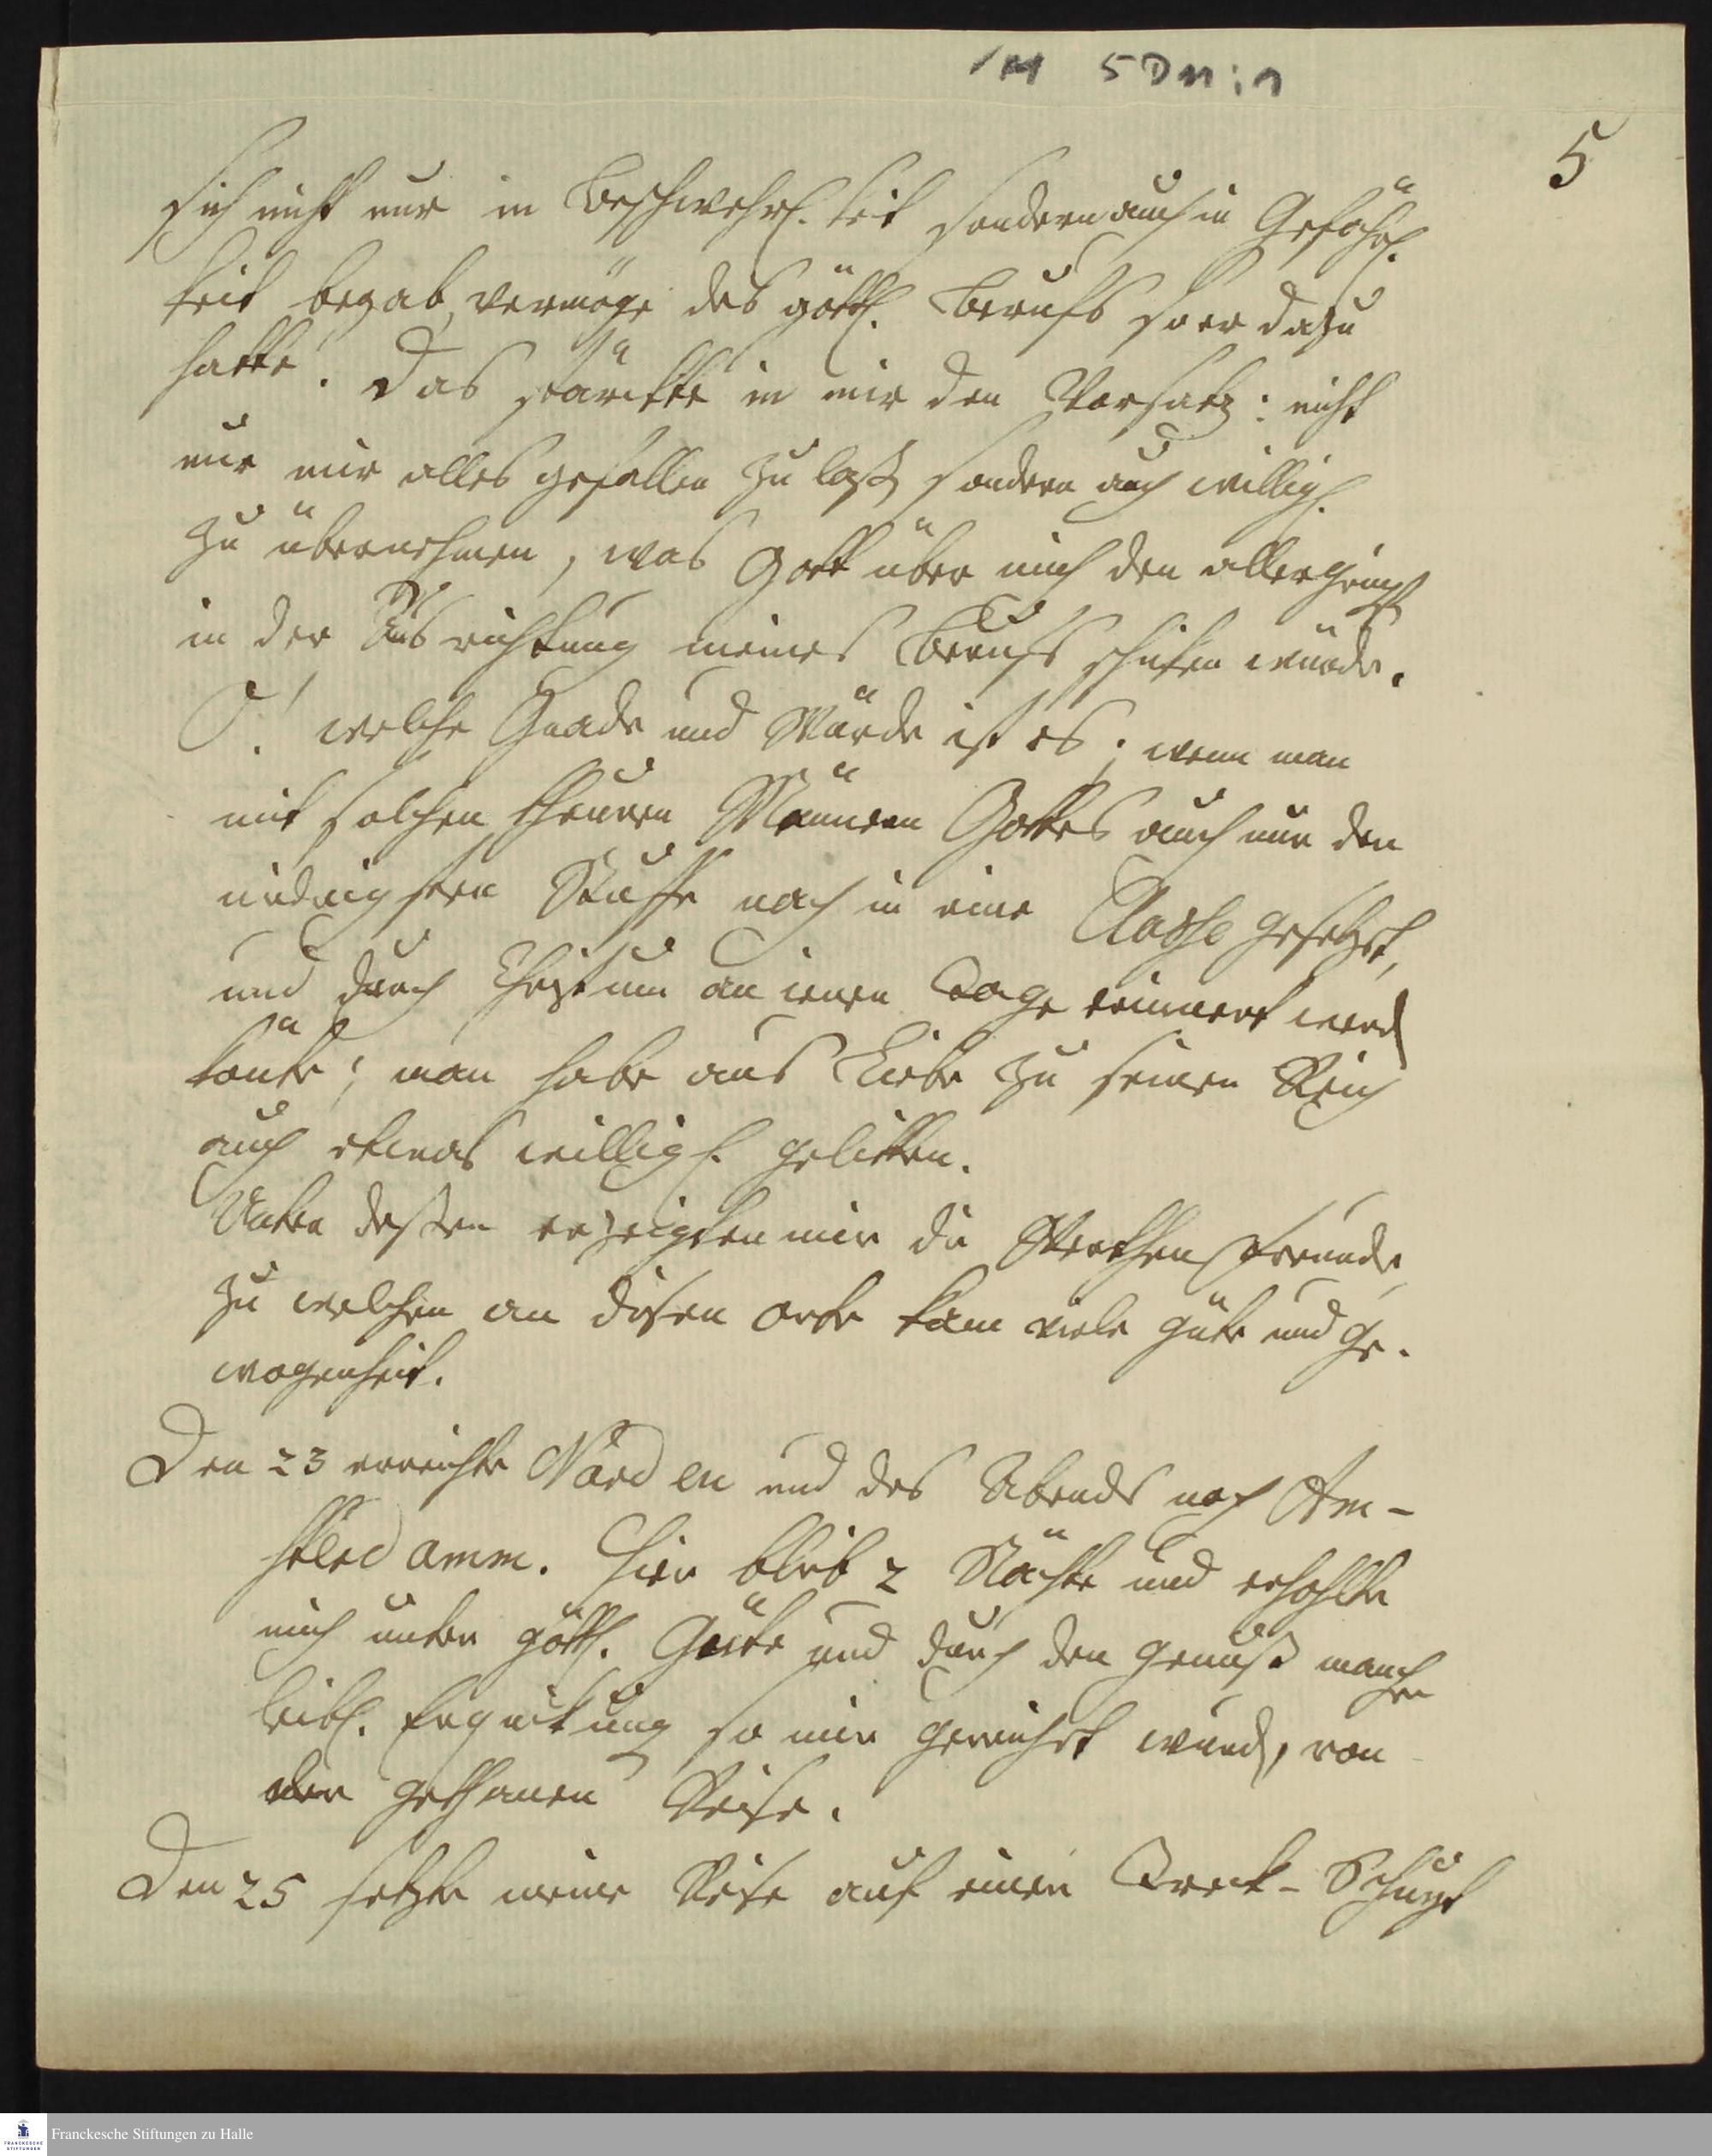 1M 5 D 11:1
5
sich nicht nur in Beschwehrl. keit sondern auch in Gefährl.
keit begab, vermöge des göttl. Berufs so er dazu
hatte. Das stärckte in mir den Vorsatz: nicht
nur mir alles gefallen zu laßen sondern auch willigl.
zu übernehmen, was Gott über mich den allergeringst
in der Ausrichtung meines Berufs schicken würde.
O! welche Gnade und Würde ist es; wenn man
mit solchen theuren Männern Gottes auch nur der
niedrigsten Stuffe nach in eine Classe gesetzet,
und durch Christum an jenen Tage erinnert werden
könte; man habe aus Liebe zu seinen Reich
auch etwas willigl. gelitten.
Unter deßen erzeigten mir die Werthen Freunde,
zu welchen an diesen orte kam viele güte und ge-
wogenheit.
Den 23 erreichte Narden und des Abends noch Am-
sterdamm. Hier blieb 2 Nächte und erhohlte
mich unter göttl. Güte und durch den genuß mancher
leibl. Erquickung so mir gereichet wurde, von
der gethanen Reise.
Den 25 setzte meine Reise auf einen Treck-Schuyt
Franckesche Stiftungen zu Halle